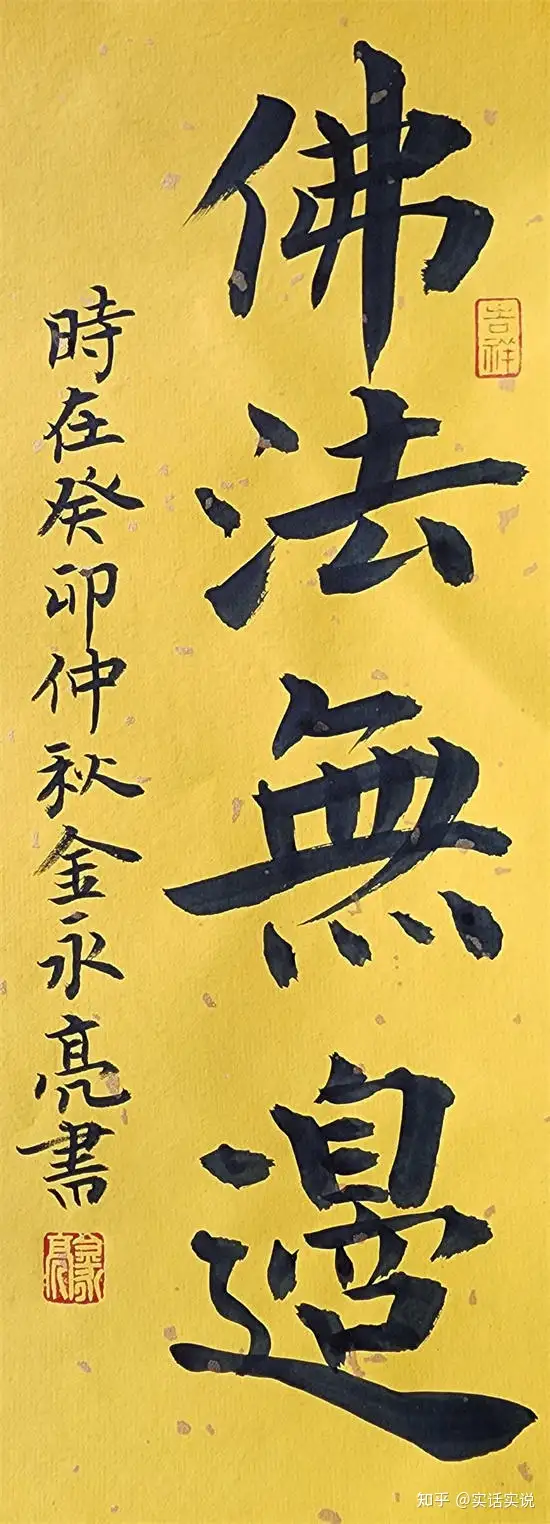 佛法無邊
吉祥
時在癸卯仲秋金永亮書
知乎 @实话实说